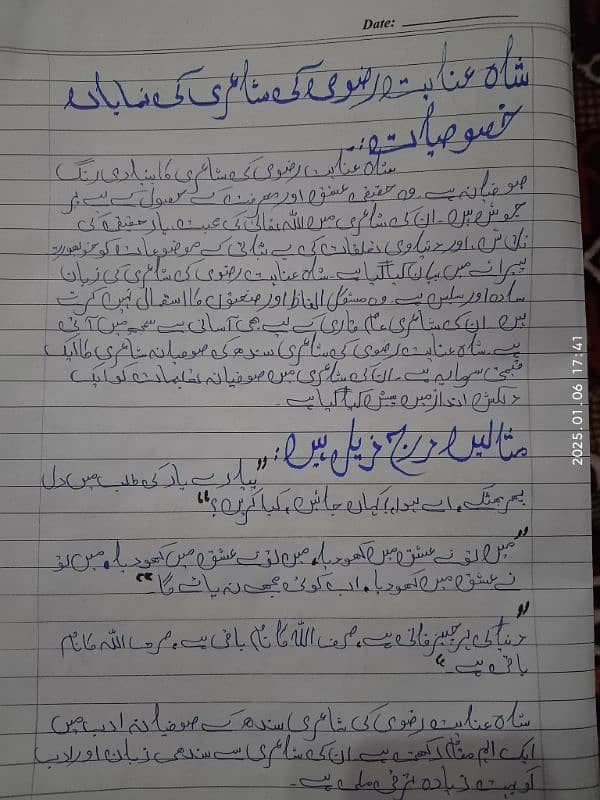 Date:
شاہ عنایت رضوی کی شاعری کی نمایاں
خصوصیات:-
شاہ عنایت رضوی کی شاعری کا بنیادی رنگ
صوفیانہ ہے۔ وہ حقیقی عشق اور معرفت کے حصول کے لیے پر
جوش ہیں۔ ان کی شاعری میں اللہ تعالیٰ کی محبت، یار حقیقی کی
اور دنیاوی تعلقات کی بے ثباتی کے موضوعات کو خوبصورت
پیرائے میں بیان کیا گیا ہے۔ شاہ عنایت رضوی کی شاعری کی زبان
سادہ اور سلیس ہے۔ وہ مشکل الفاظ اور صنعتوں کا استعمال نہیں کرتے
ہیں۔ ان کی شاعری عام قاری کے لیے بھی آسانی سے سمجھ میں آتی
ہے۔ شاہ عنایت رضوی کی شاعری سندھ کی صوفیانہ شاعری کا ایک
قیمتی سرمایہ ہے۔ ان کی شاعری میں صوفیانہ تعلیمات کو ایک
دلکش انداز میں پیش کیا گیا ہے۔
مثالیں درج ذیل ہیں:
"پیارے یار کی طلب میں دل
بھر بھٹک، اے ہوا، کہاں جائیں، کیا کریں؟"
"میں تو نے عشق میں کھو دیا، میں تو نے عشق میں کھو دیا، میں تو
نے عشق میں کھو دیا، اب کوئی مجھے نہ پائے گا۔"
"دنیا کی ہر چیز فانی ہے، صرف اللہ کا نام باقی ہے، صرف اللہ کا نام
باقی ہے۔"
شاہ عنایت رضوی کی شاعری سندھ کے صوفیانہ ادب میں
ایک اہم مقام رکھتی ہے۔ ان کی شاعری سے سندھی زبان اور ادب
کو بہت زیادہ ترقی ملی ہے۔
2025.01.06 17:41